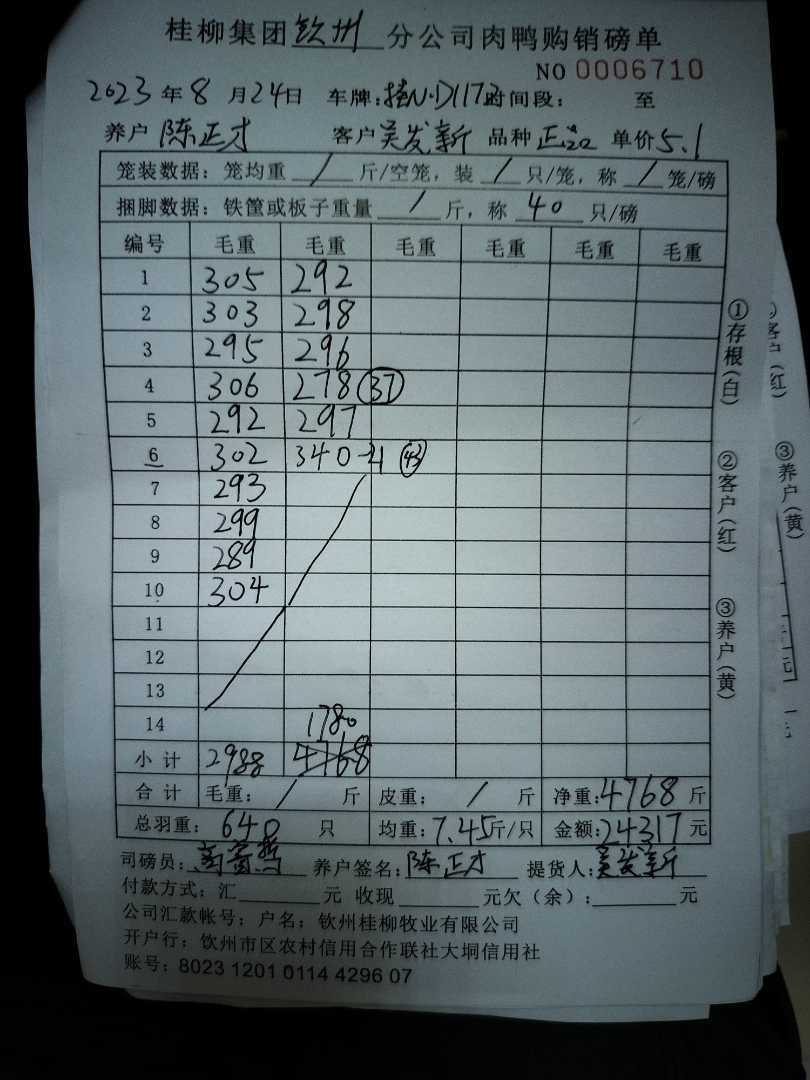 桂柳集团钦州分公司肉鸭购销磅单
NO 0006710
2023年8月24日 车牌:桂N·D1173时间段: 至
养户 陈正才 客户吴发新 品种 正 单价5.1
笼装数据:笼均重 / 斤/空笼,装 / 只/笼,称 / 笼/磅
捆脚数据:铁筐或板子重量 / 斤,称 40 只/磅
编号 毛重 毛重 毛重 毛重 毛重 毛重
1 305 292
2 303 298
3 295 296
4 306 278 (37)
5 292 297
6 302 340-21 (43)
7 293
8 299
9 289
10 304
11
12
13
14 1780
小计 2988 4768
合计 毛重: / 斤 皮重: / 斤 净重:4768斤
总羽重: 640 只 均重:7.45斤/只 金额:24317元
司磅员: 养户签名:陈正才 提货人:吴发新
付款方式:汇 元 收现 元欠(余): 元
公司汇款帐号:户名:钦州桂柳牧业有限公司
开户行:钦州市区农村信用合作联社大垌信用社
账号:8023 1201 0114 4296 07
①存根(白)
②客户(红)
③养户(黄)
客户(红)
③养户(黄)